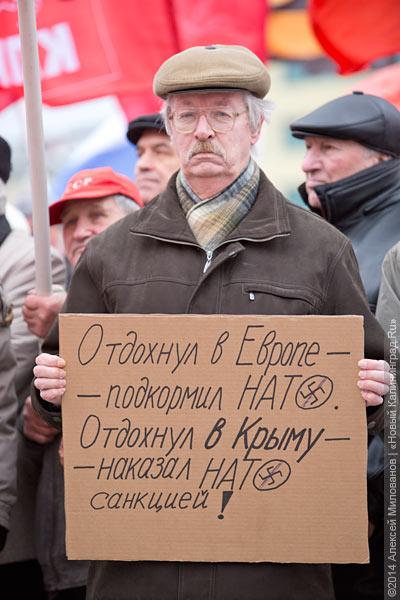 КП
СССР
Отдохнул в Европе —
— подкормил НАТО.
Отдохнул в Крыму —
— наказал НАТО
санкцией!
©2014 Алексей Милованов | «Новый Калининград.Ru»